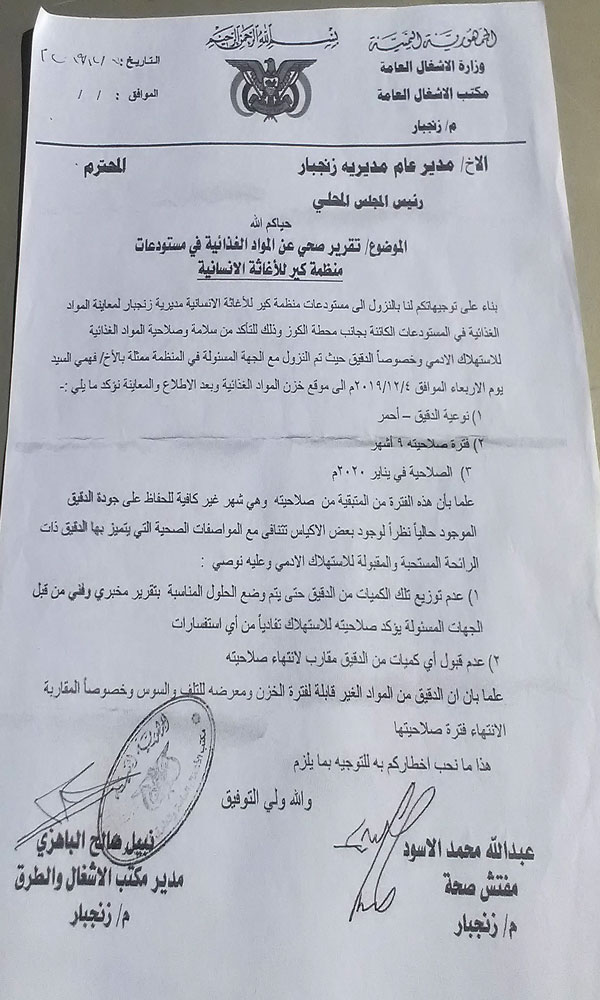 بسم الله الرحمن الرحيم
الجمهورية اليمنية
وزارة الاشغال العامة
مكتب الاشغال العامة
م/ زنجبار
التاريخ:
الموافق : / /
الاخ/ مدير عام مديريه زنجبار المحترم
رئيس المجلس المحلي
حياكم الله
الموضوع/ تقرير صحي عن المواد الغذائية في مستودعات
منظمة كير للأغاثة الانسانية
بناء على توجيهاتكم لنا بالنزول الى مستودعات منظمة كير للأغاثة الانسانية مديرية زنجبار لمعاينة المواد
الغذائية في المستودعات الكائنة بجانب محطة الكوز وذلك للتأكد من سلامة وصلاحية المواد الغذائية
للاستهلاك الادمي وخصوصاً الدقيق حيث تم النزول مع الجهة المسئولة في المنظمة ممثلة بالأخ/ فهمي السيد
يوم الاربعاء الموافق ٢٠١٩/١٢/٤م الى موقع خزن المواد الغذائية وبعد الاطلاع والمعاينة نؤكد ما يلي :-
١) نوعية الدقيق – أحمر
٢) فترة صلاحيته ٩ أشهر
٣) الصلاحية في يناير ٢٠٢٠م
علما بأن هذه الفترة من المتبقية من صلاحيته وهي شهر غير كافية للحفاظ على جودة الدقيق
الموجود حالياً نظراً لوجود بعض الاكياس تتنافى مع المواصفات الصحية التي يتميز بها الدقيق ذات
الرائحة المستحبة والمقبولة للاستهلاك الادمي وعليه نوصي :
١) عدم توزيع تلك الكميات من الدقيق حتى يتم وضع الحلول المناسبة بتقرير مخبري وفني من قبل
الجهات المسئولة يؤكد صلاحيته للاستهلاك تفادياً من أي استفسارات
٢) عدم قبول أي كميات من الدقيق مقارب لانتهاء صلاحيته
علما بان ان الدقيق من المواد الغير قابلة لفترة الخزن ومعرضه للتلف والسوس وخصوصاً المقاربة
الانتهاء فترة صلاحيتها
هذا ما نحب اخطاركم به للتوجيه بما يلزم
والله ولي التوفيق
عبدالله محمد الاسود
مفتش صحة
م/ زنجبار
نبيل صالح الباهزي
مدير مكتب الاشغال والطرق
م/ زنجبار